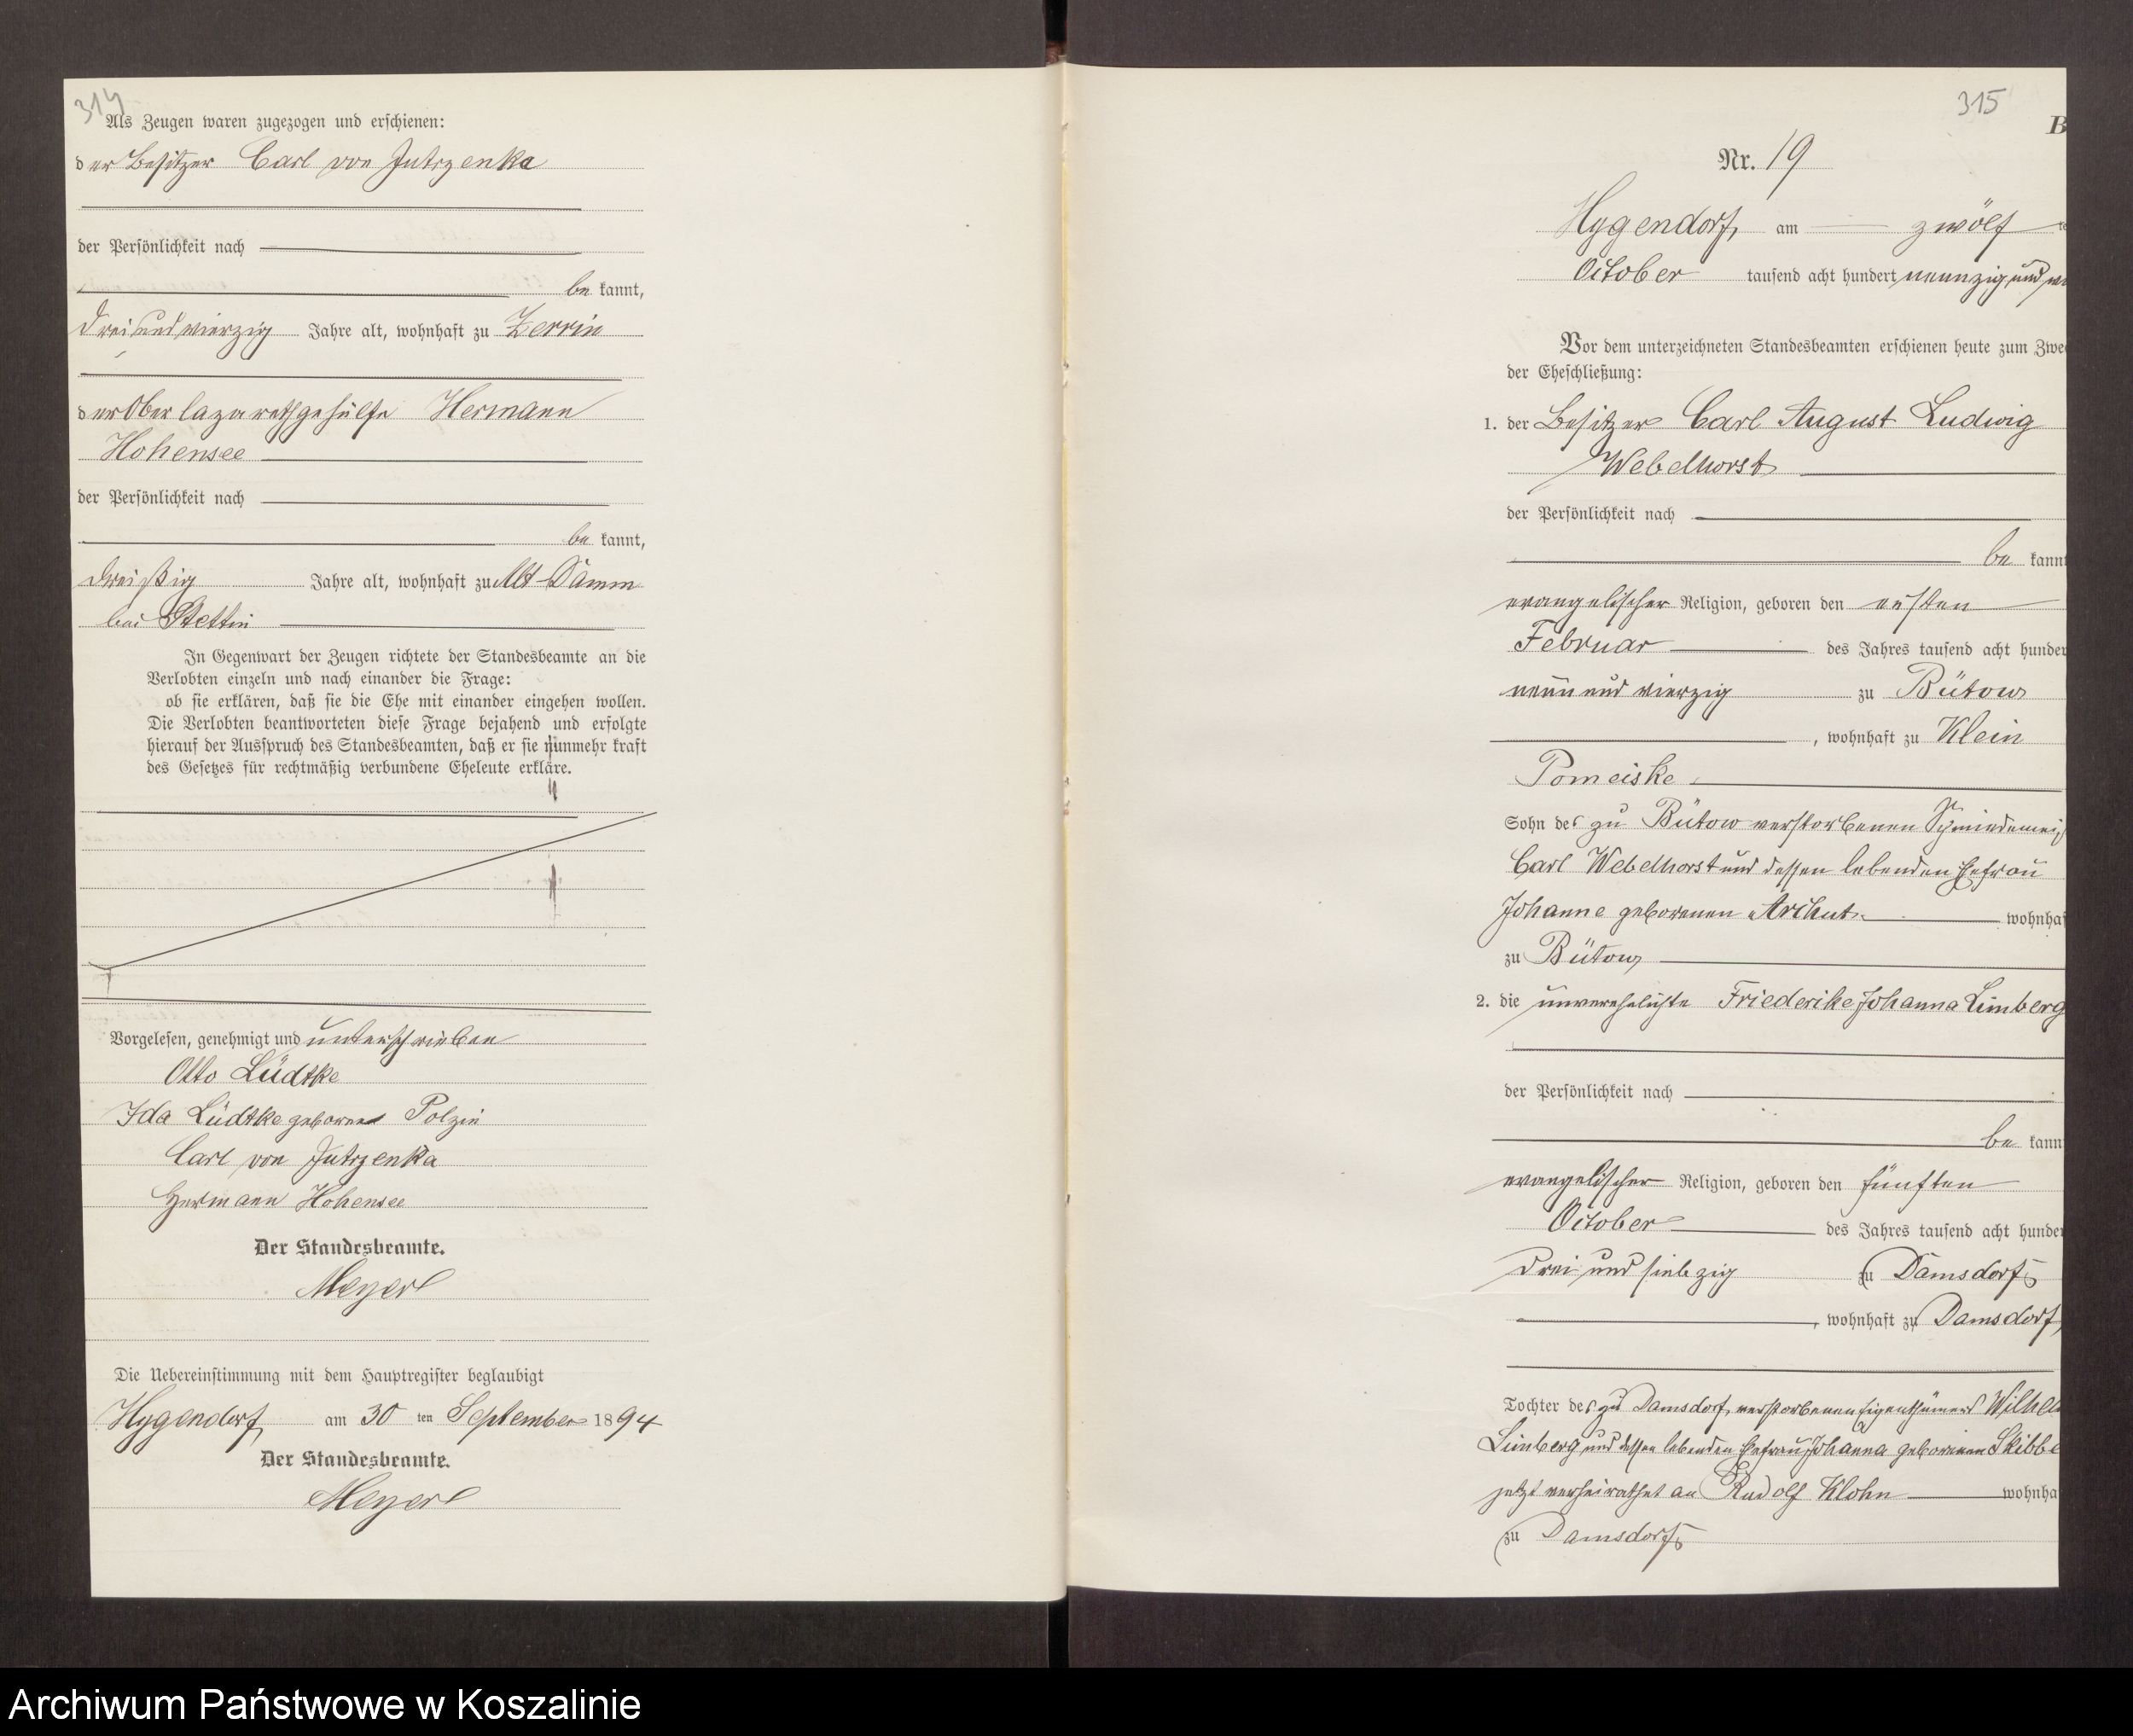 314
Als Zeugen waren zugezogen und erschienen:
der Besitzer Carl von Jutrzenka
der Persönlichkeit nach
be kannt,
drei und vierzig Jahre alt, wohnhaft zu Zerrin
der Ober lazarethgehülfe Hermann
Hohensee
der Persönlichkeit nach
be kannt,
dreißig Jahre alt, wohnhaft zu Alt-Damm
bei Stettin
In Gegenwart der Zeugen richtete der Standesbeamte an die
Verlobten einzeln und nach einander die Frage:
ob sie erklären, daß sie die Ehe mit einander eingehen wollen.
Die Verlobten beantworteten diese Frage bejahend und erfolgte
hierauf der Ausspruch des Standesbeamten, daß er sie nunmehr kraft
des Gesetzes für rechtmäßig verbundene Eheleute erkläre.
Vorgelesen, genehmigt und unterschrieben
Otto Lüdtke
Ida Lüdtke geborene Polzin
Carl von Jutrzenka
Hermann Hohensee
Der Standesbeamte.
Meyerl
Die Uebereinstimmung mit dem Hauptregister beglaubigt
Hygendorf, am 30 ten September 1894
Der Standesbeamte.
Meyerl
315
B
Nr. 19
Hygendorf, am zwölf te
October tausend acht hundert neunzig und
Vor dem unterzeichneten Standesbeamten erschienen heute zum Zwe
der Eheschließung:
1. der Besitzer Carl August Ludwig
Webelhorst
der Persönlichkeit nach
be kannt
evangelischer Religion, geboren den ersten
Februar des Jahres tausend acht hunder
neun und vierzig zu Bütow
, wohnhaft zu Klein
Pomeiske
Sohn des zu Bütow verstorbenen Schmiedemei
Carl Webelhorst und dessen lebenden Ehefrau
Johanne geborenen Archut wohnhaf
zu Bütow,
2. die unverehelichte Friederike Johanna Limberg
der Persönlichkeit nach
be kann
evangelischer Religion, geboren den fünften
October des Jahres tausend acht hunder
drei und siebzig zu Damsdorf
, wohnhaft zu Damsdorf,
Tochter des zu Damsdorf, verstorbenen Eigenthümers Wilhel
Limberg und dessen lebenden Ehefrau Johanna geborenen Skibbe
jetzt verheirathet an Rudolf Klohn wohnha
zu Damsdorf
Archiwum Państwowe w Koszalinie